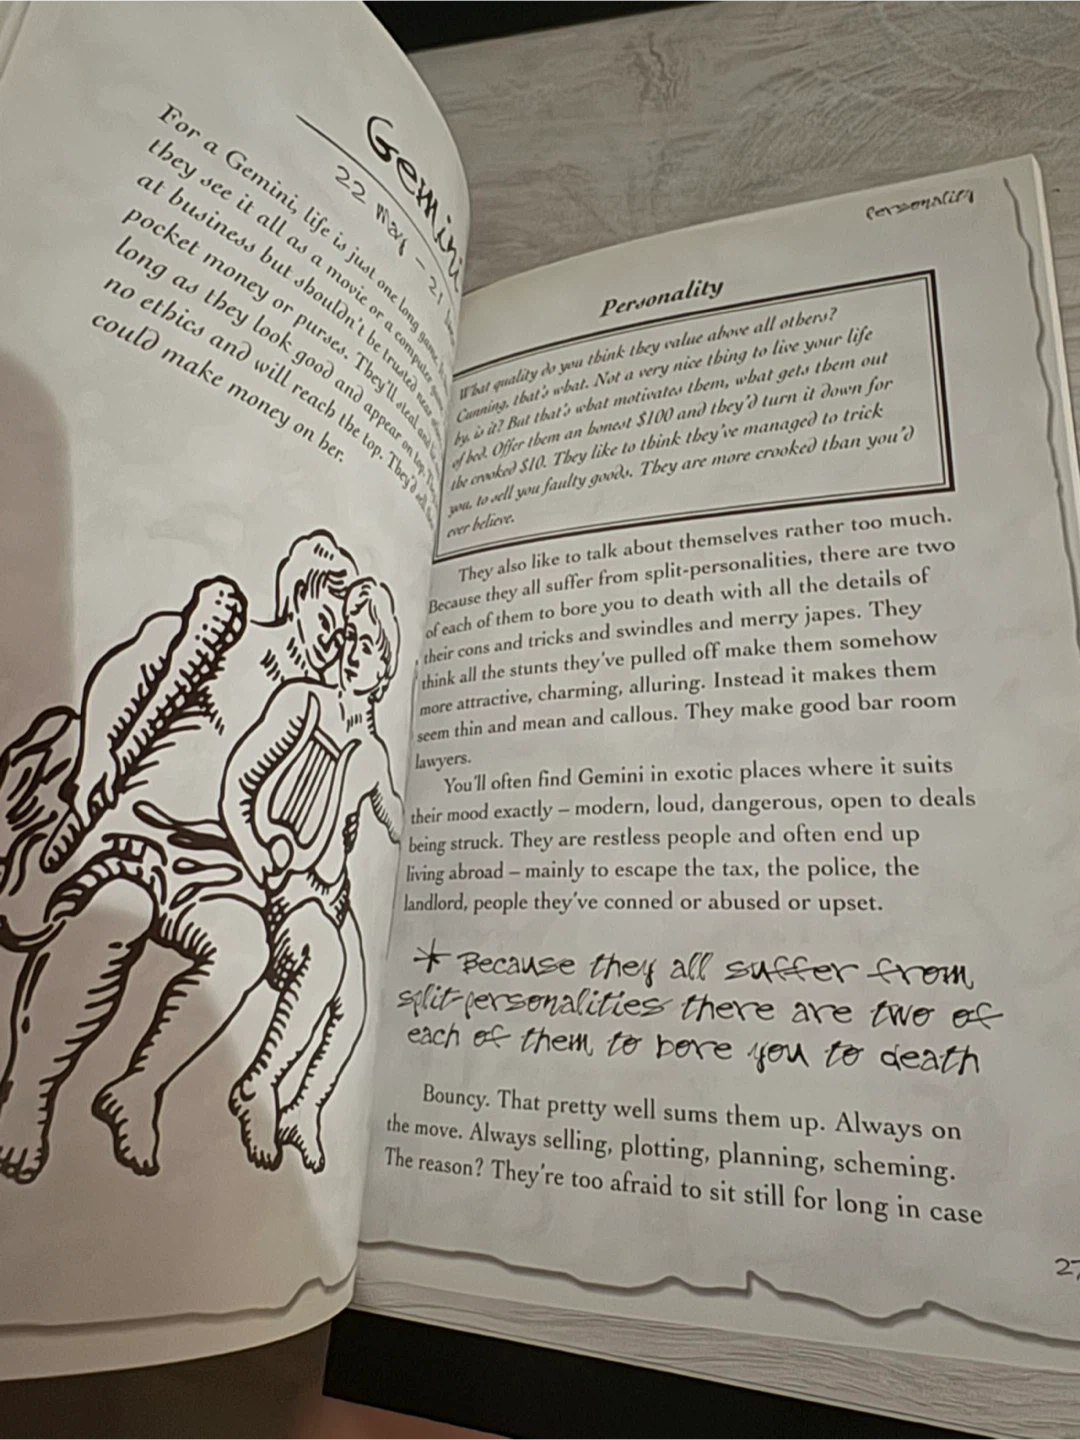 Gemini
22 May – 21
For a Gemini, life is just one long game.
they see it all as a movie or a computer game
at business but shouldn't be trusted near
pocket money or purses. They'll steal and
long as they look good and appear on top. They
no ethics and will reach the top. They'd sell their
could make money on her.
Personality
Personality
What quality do you think they value above all others?
Cunning, that's what. Not a very nice thing to live your life
by, is it? But that's what motivates them, what gets them out
of bed. Offer them an honest $100 and they'd turn it down for
the crooked $10. They like to think they've managed to trick
you, to sell you faulty goods. They are more crooked than you'd
ever believe.
They also like to talk about themselves rather too much.
Because they all suffer from split-personalities, there are two
of each of them to bore you to death with all the details of
their cons and tricks and swindles and merry japes. They
think all the stunts they've pulled off make them somehow
more attractive, charming, alluring. Instead it makes them
seem thin and mean and callous. They make good bar room
lawyers.
You'll often find Gemini in exotic places where it suits
their mood exactly – modern, loud, dangerous, open to deals
being struck. They are restless people and often end up
living abroad – mainly to escape the tax, the police, the
landlord, people they've conned or abused or upset.
* Because they all suffer from
split-personalities there are two of
each of them to bore you to death
Bouncy. That pretty well sums them up. Always on
the move. Always selling, plotting, planning, scheming.
The reason? They're too afraid to sit still for long in case
27